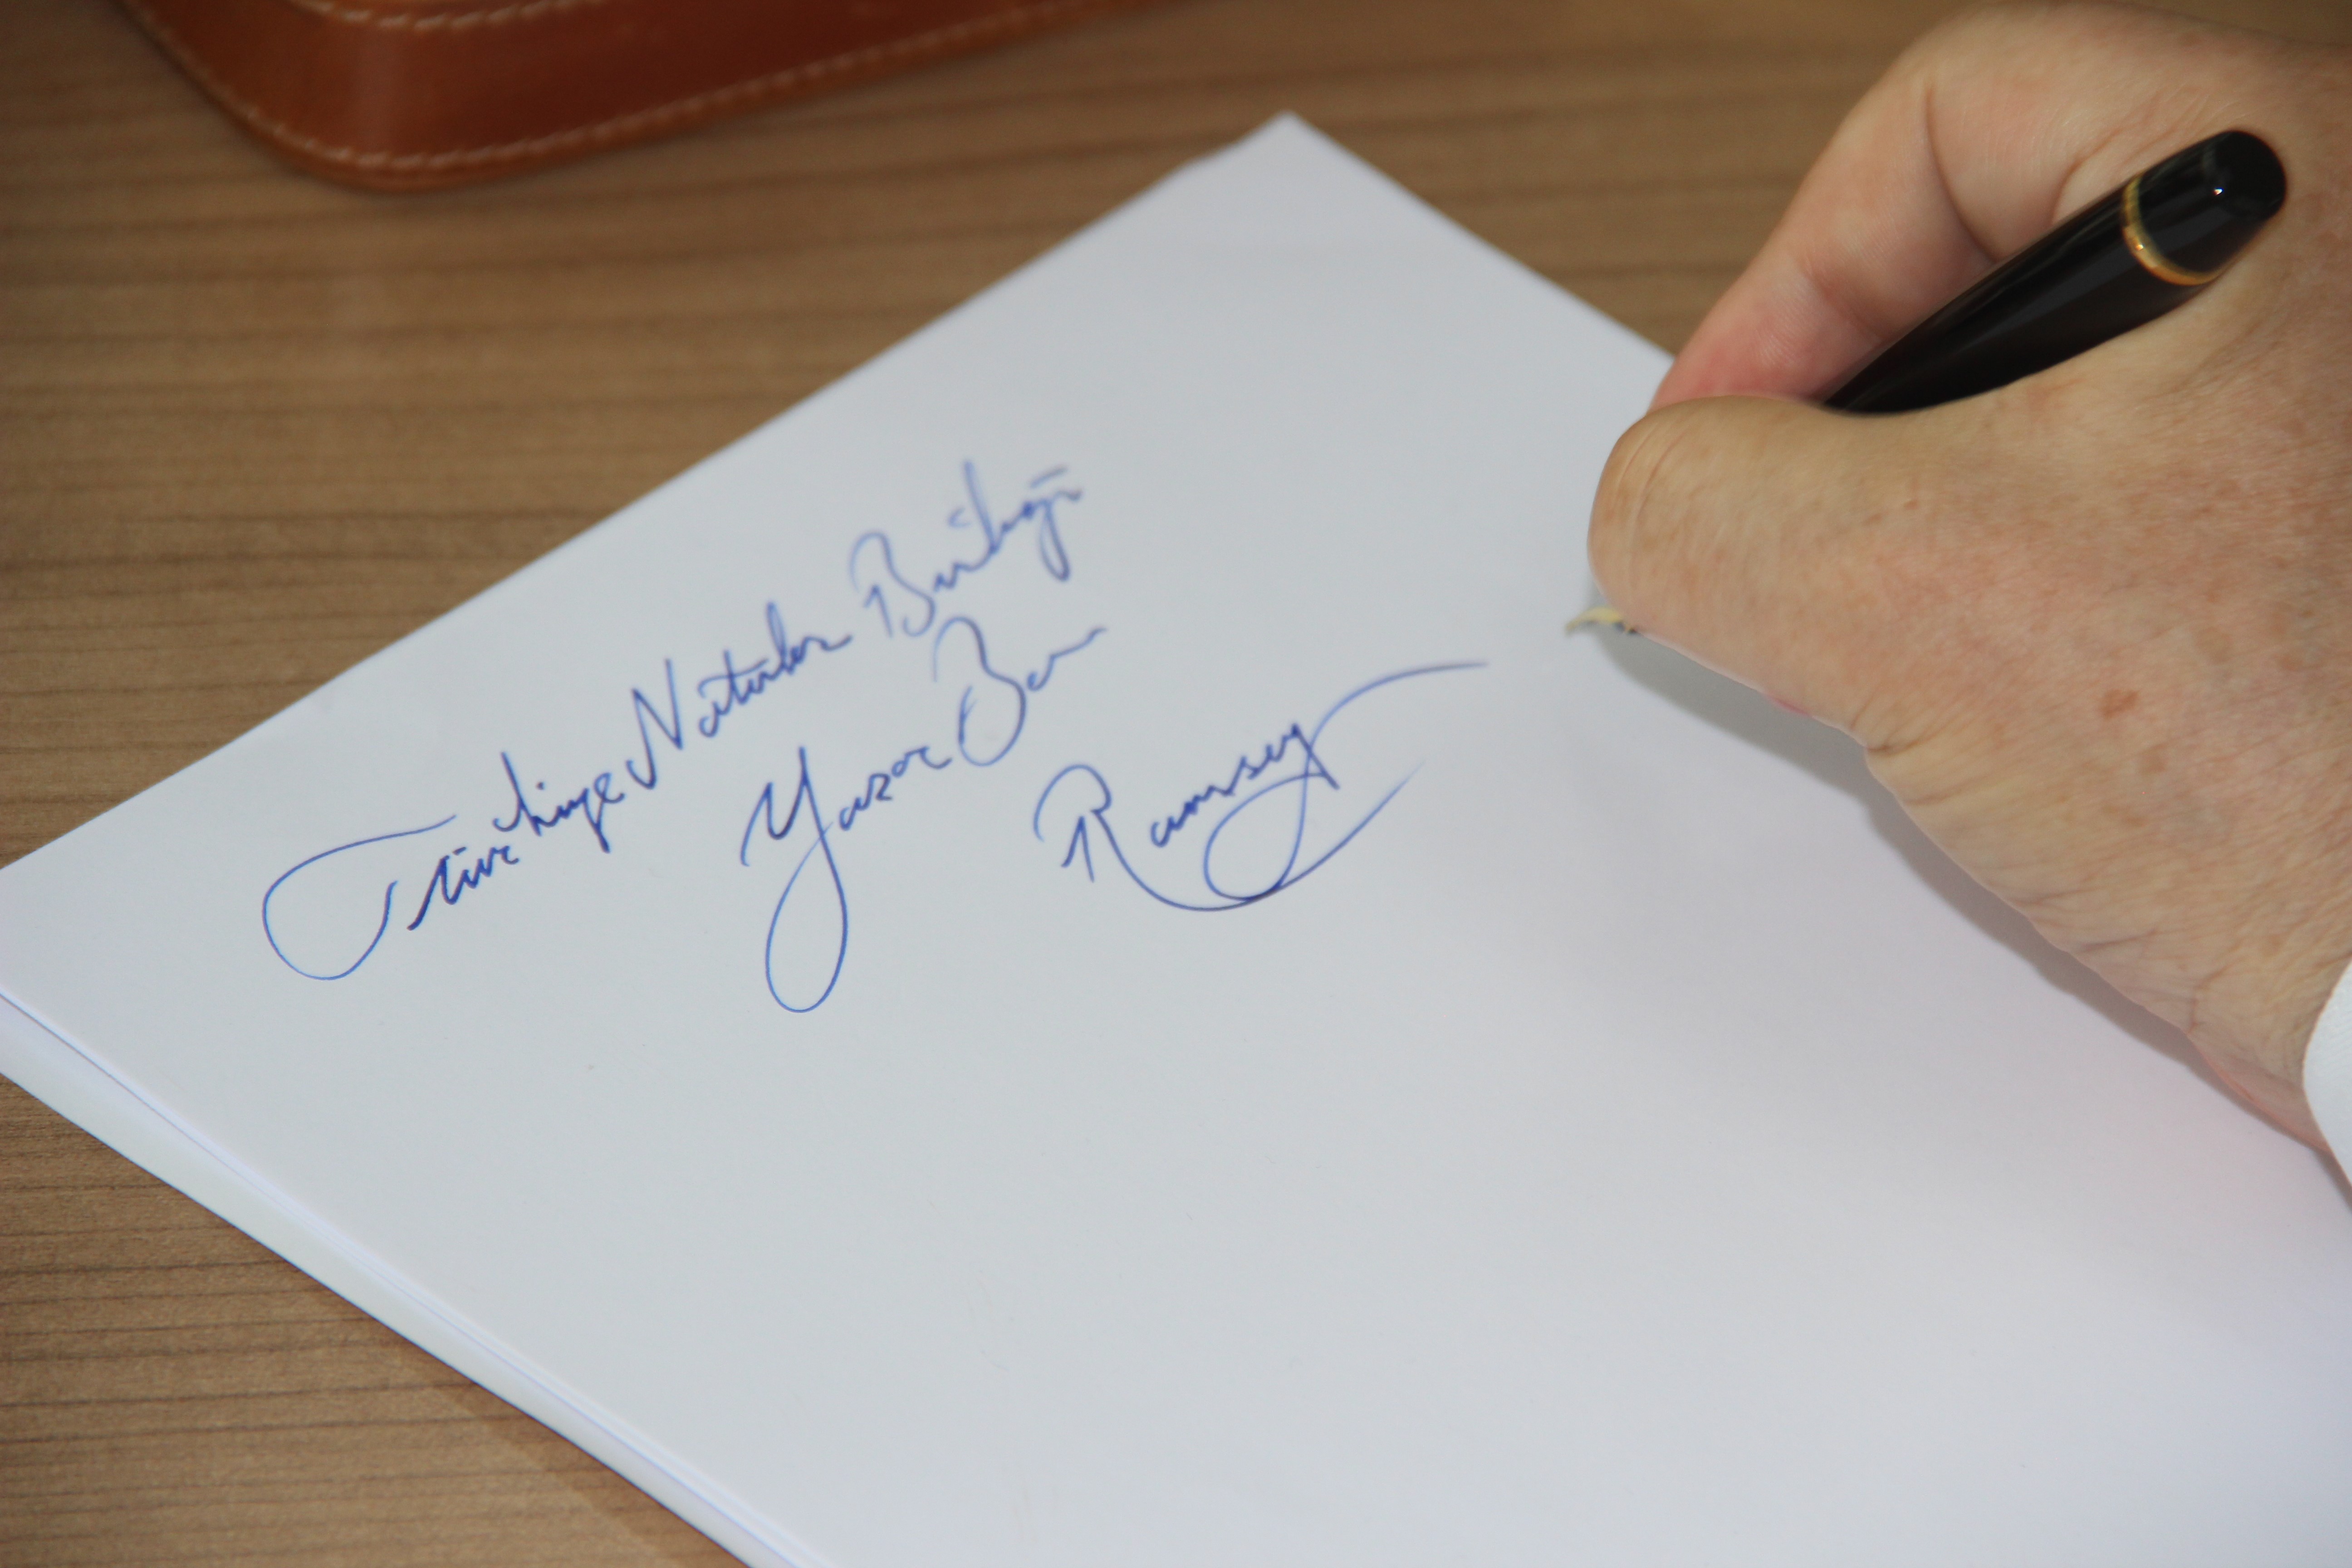 Türkiye Noterler Birliği
Yazar Ben
Ramsey